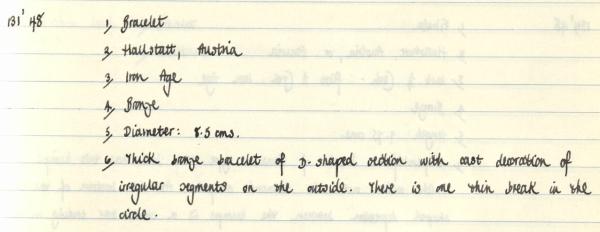 131' 48 1, Bracelet
2, Hallstatt, Austria
3, Iron Age
4, Bronze
5, Diameter: 8.5 cms.
6, Thick bronze bracelet of D-shaped section with cast decoration of
irregular segments on the outside. There is one thin break in the
circle.